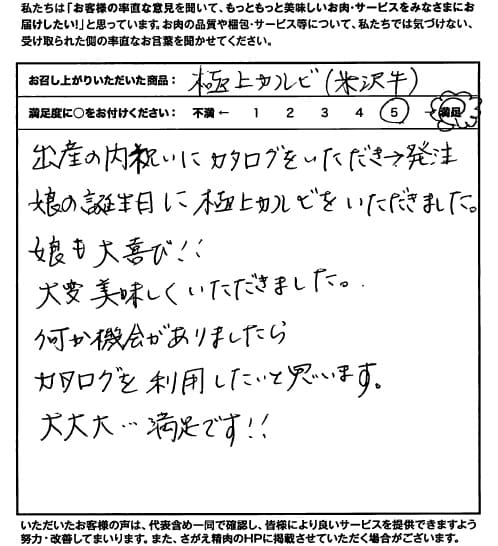 私たちは「お客様の率直な意見を聞いて、もっともっと美味しいお肉・サービスをみなさまにお
届けしたい!」と思っています。お肉の品質や梱包・サービス等について、私たちでは気づけない、
受け取られた側の率直なお言葉を聞かせてください。
お召し上がりいただいた商品: 極上カルビ(米沢牛)
満足度に○をお付けください: 不満 ← 1 2 3 4 5 → 満足
出産の内祝いにカタログをいただき→発注
娘の誕生日に極上カルビをいただきました。
娘も大喜び!!
大変美味しくいただきました。
何か機会がありましたら
カタログを利用したいと思います。
大大大…満足です!!
いただいたお客様の声は、代表含め一同で確認し、皆様により良いサービスを提供できますよう
努力・改善してまいります。また、さがえ精肉のHPに掲載させていただく場合がございます。